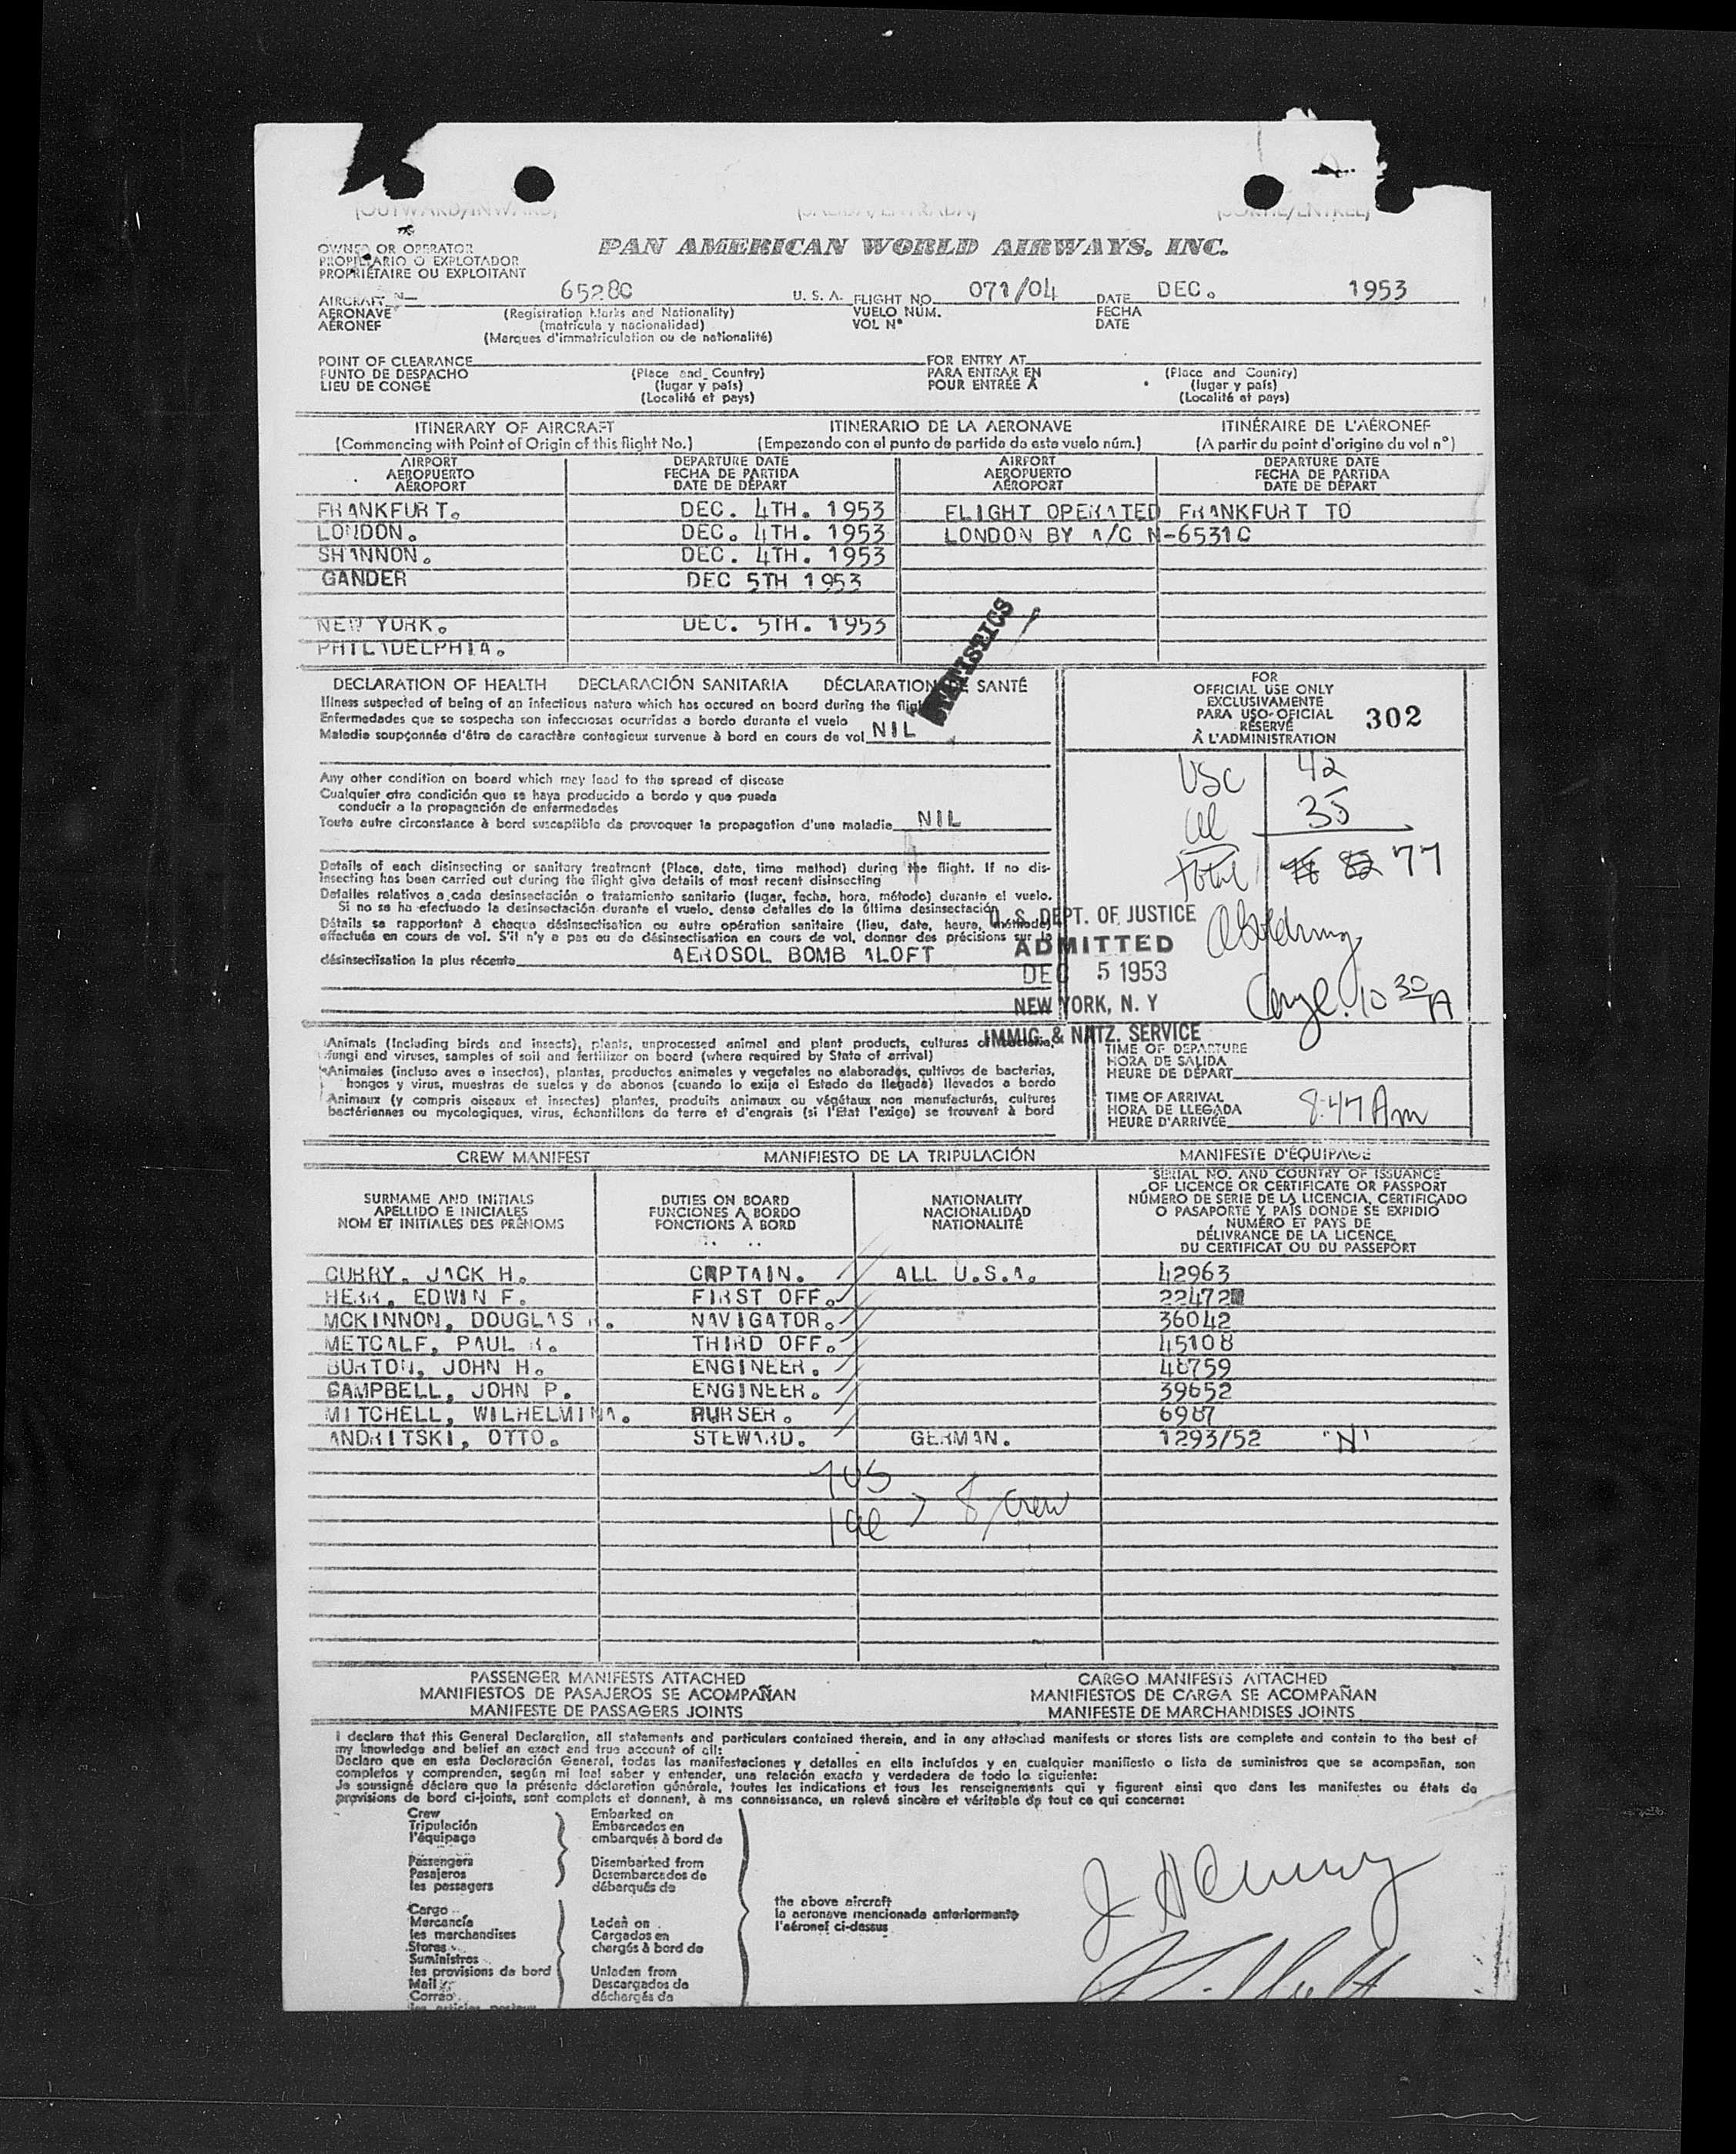 (OUTWARD/INWARD) (SALIDA/ENTRADA) (SORTIE/ENTRÉE)
OWNER OR OPERATOR
PROPIETARIO O EXPLOTADOR
PROPRIÉTAIRE OU EXPLOITANT
PAN AMERICAN WORLD AIRWAYS, INC.
AIRCRAFT N- 6528C U. S. A. FLIGHT NO. 071/04 DATE DEC. 1953
AERONAVE (Registration Marks and Nationality) VUELO NÚM. FECHA
AÉRONEF (matrícula y nacionalidad) VOL Nº DATE
(Marques d'immatriculation ou de nationalité)
POINT OF CLEARANCE FOR ENTRY AT
PUNTO DE DESPACHO (Place and Country) PARA ENTRAR EN (Place and Country)
LIEU DE CONGÉ (lugar y país) POUR ENTRÉE À (lugar y país)
(Localité et pays) (Localité et pays)
ITINERARY OF AIRCRAFT ITINERARIO DE LA AERONAVE ITINÉRAIRE DE L'AÉRONEF
(Commencing with Point of Origin of this flight No.) (Empezando con el punto de partida de este vuelo núm.) (A partir du point d'origine du vol nº)
AIRPORT DEPARTURE DATE AIRPORT DEPARTURE DATE
AEROPUERTO FECHA DE PARTIDA AEROPUERTO FECHA DE PARTIDA
AÉROPORT DATE DE DÉPART AÉROPORT DATE DE DÉPART
FRANKFURT. DEC. 4TH. 1953 FLIGHT OPERATED FRANKFURT TO
LONDON. DEC. 4TH. 1953 LONDON BY A/C N-6531C
SHANNON. DEC. 4TH. 1953
GANDER DEC 5TH 1953
NEW YORK. DEC. 5TH. 1953
PHILADELPHIA.
STATISTICS
DECLARATION OF HEALTH DECLARACIÓN SANITARIA DÉCLARATION DE SANTÉ
Illness suspected of being of an infectious nature which has occured on board during the flight
Enfermedades que se sospecha son infecciosas ocurridas a bordo durante el vuelo
Maladie soupçonnée d'être de caractère contagieux survenue à bord en cours de vol NIL
Any other condition on board which may lead to the spread of disease
Cualquier otra condición que se haya producido a bordo y que pueda
conducir a la propagación de enfermedades
Toute autre circonstance à bord susceptible de provoquer la propagation d'une maladie NIL
Details of each disinsecting or sanitary treatment (Place, date, time method) during the flight. If no dis-
insecting has been carried out during the flight give details of most recent disinsecting
Detalles relativos a cada desinsectación o tratamiento sanitario (lugar, fecha, hora, método) durante el vuelo.
Si no se ha efectuado la desinsectación durante el vuelo, dense detalles de la última desinsectación
Détails se rapportent à chaque désinsectisation ou autre opération sanitaire (lieu, date, heure, méthode)
effectuée en cours de vol. S'il n'y a pas eu de désinsectisation en cours de vol, donner des précisions sur la
désinsectisation la plus récente AEROSOL BOMB ALOFT
FOR
OFFICIAL USE ONLY
EXCLUSIVAMENTE
PARA USO OFICIAL
RÉSERVÉ
À L'ADMINISTRATION
302
USC 42
al 35
total 77
U. S. DEPT. OF JUSTICE
ADMITTED
DEC 5 1953
NEW YORK, N. Y
IMMIG. & NATZ. SERVICE
10 30 A
Animals (Including birds and insects), plants, unprocessed animal and plant products, cultures of bacteria,
fungi and viruses, samples of soil and fertilizer on board (where required by State of arrival)
Animales (incluso aves e insectos), plantas, productos animales y vegetales no elaborados, cultivos de bacterias,
hongos y virus, muestras de suelos y de abonos (cuando lo exija el Estado de llegada) llevados a bordo
Animaux (y compris oiseaux et insectes) plantes, produits animaux ou végétaux non manufacturés, cultures
bactériennes ou mycologiques, virus, échantillons de terre et d'engrais (si l'État l'exige) se trouvant à bord
TIME OF DEPARTURE
HORA DE SALIDA
HEURE DE DÉPART
TIME OF ARRIVAL
HORA DE LLEGADA
HEURE D'ARRIVÉE 8:47 Am
CREW MANIFEST MANIFIESTO DE LA TRIPULACIÓN MANIFESTE D'ÉQUIPAGE
SURNAME AND INITIALS
APELLIDO E INICIALES
NOM ET INITIALES DES PRÉNOMS
DUTIES ON BOARD
FUNCIONES A BORDO
FONCTIONS À BORD
NATIONALITY
NACIONALIDAD
NATIONALITÉ
SERIAL NO. AND COUNTRY OF ISSUANCE
OF LICENCE OR CERTIFICATE OR PASSPORT
NÚMERO DE SERIE DE LA LICENCIA, CERTIFICADO
O PASAPORTE Y PAÍS DONDE SE EXPIDIÓ
NUMÉRO ET PAYS DE
DÉLIVRANCE DE LA LICENCE,
DU CERTIFICAT OU DU PASSEPORT
CURRY, JACK H. CAPTAIN. ALL U.S.A. 42963
HERR, EDWIN F. FIRST OFF. 22472
MCKINNON, DOUGLAS . NAVIGATOR. 36042
METCALF, PAUL R. THIRD OFF. 45108
BURTON, JOHN H. ENGINEER. 48759
CAMPBELL, JOHN P. ENGINEER. 39652
MITCHELL, WILHELMINA. PURSER. 6987
ANDRITSKI, OTTO. STEWARD. GERMAN. 1293/52 "N"
7 US
1 al > 8 crew
PASSENGER MANIFESTS ATTACHED CARGO MANIFESTS ATTACHED
MANIFIESTOS DE PASAJEROS SE ACOMPAÑAN MANIFIESTOS DE CARGA SE ACOMPAÑAN
MANIFESTE DE PASSAGERS JOINTS MANIFESTE DE MARCHANDISES JOINTS
I declare that this General Declaration, all statements and particulars contained therein, and in any attached manifests or stores lists are complete and contain to the best of
my knowledge and belief an exact and true account of all:
Declaro que en esta Declaración General, todas las manifestaciones y detalles en ella incluídos y en cualquier manifiesto o lista de suministros que se acompañan, son
completos y comprenden, según mi leal saber y entender, una relación exacta y verdadera de todo lo siguiente:
Je soussigné déclare que la présente déclaration générale, toutes les indications et tous les renseignements qui y figurent ainsi que dans les manifestes ou états de
provisions de bord ci-joints, sont complets et donnent, à ma connaissance, un relevé sincère et véritable de tout ce qui concerne:
Crew
Tripulación
l'équipage
Passengers
Pasajeros
les passagers
Cargo
Mercancía
les marchandises
Stores
Suministros
les provisions de bord
Mail
Correo
les articles postaux
Embarked on
Embarcados en
embarqués à bord de
Disembarked from
Desembarcados de
débarqués de
Laden on
Cargados en
chargés à bord de
Unladen from
Descargados de
déchargés de
the above aircraft
la aeronave mencionada anteriormente
l'aéronef ci-dessus
J H Curry